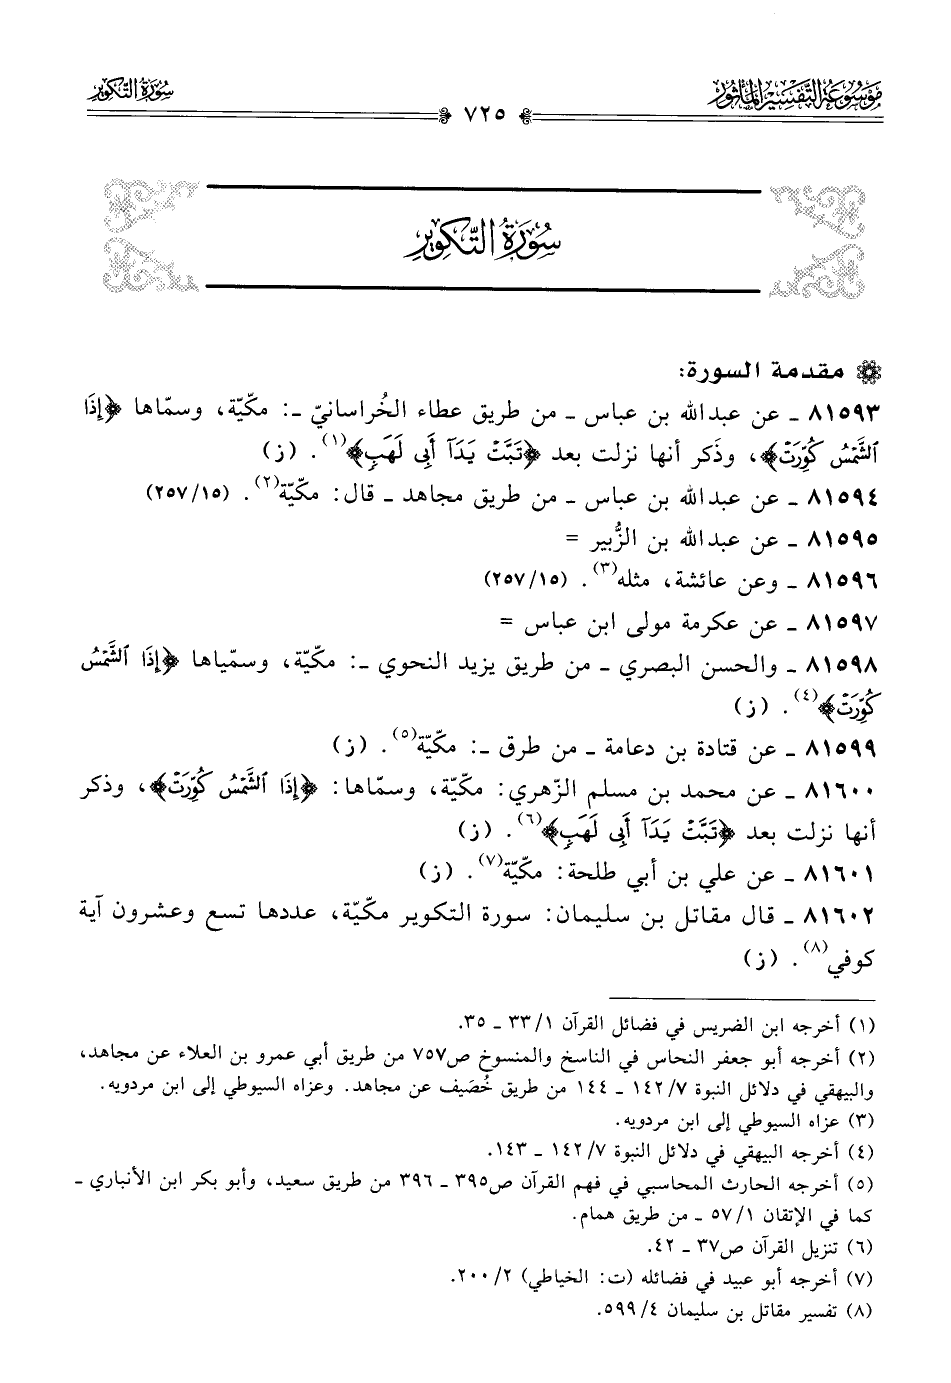 موسوعة التفسير المأثور
سورة التكوير
٧٢٥
سُورَةُ التَّكْوِيرِ
مقدمة السورة:
٨١٥٩٣ ـ عن عبدالله بن عباس ـ من طريق عطاء الخُراسانيّ ـ: مكّيّة، وسمّاها ﴿إِذَا
ٱلشَّمْسُ كُوِّرَتْ﴾، وذَكر أنها نزلت بعد ﴿تَبَّتْ يَدَآ أَبِى لَهَبٍ﴾(١). (ز)
٨١٥٩٤ ـ عن عبدالله بن عباس ـ من طريق مجاهد ـ قال: مكّيّة(٢). (٢٥٧/١٥)
٨١٥٩٥ ـ عن عبدالله بن الزُّبير =
٨١٥٩٦ ـ وعن عائشة، مثله(٣). (٢٥٧/١٥)
٨١٥٩٧ ـ عن عكرمة مولى ابن عباس =
٨١٥٩٨ ـ والحسن البصري ـ من طريق يزيد النحوي ـ: مكّيّة، وسمّياها ﴿إِذَا ٱلشَّمْسُ
كُوِّرَتْ﴾(٤). (ز)
٨١٥٩٩ ـ عن قتادة بن دعامة ـ من طرق ـ: مكّيّة(٥). (ز)
٨١٦٠٠ ـ عن محمد بن مسلم الزّهري: مكّيّة، وسمّاها: ﴿إِذَا ٱلشَّمْسُ كُوِّرَتْ﴾، وذكر
أنها نزلت بعد ﴿تَبَّتْ يَدَآ أَبِى لَهَبٍ﴾(٦). (ز)
٨١٦٠١ ـ عن علي بن أبي طلحة: مكّيّة(٧). (ز)
٨١٦٠٢ ـ قال مقاتل بن سليمان: سورة التكوير مكّيّة، عددها تسع وعشرون آية
كوفي(٨). (ز)
(١) أخرجه ابن الضريس في فضائل القرآن ٣٣/١ ـ ٣٥.
(٢) أخرجه أبو جعفر النحاس في الناسخ والمنسوخ ص٧٥٧ من طريق أبي عمرو بن العلاء عن مجاهد،
والبيهقي في دلائل النبوة ١٤٢/٧ ـ ١٤٤ من طريق خُصَيف عن مجاهد. وعزاه السيوطي إلى ابن مردويه.
(٣) عزاه السيوطي إلى ابن مردويه.
(٤) أخرجه البيهقي في دلائل النبوة ١٤٢/٧ ـ ١٤٣.
(٥) أخرجه الحارث المحاسبي في فهم القرآن ص٣٩٥ ـ ٣٩٦ من طريق سعيد، وأبو بكر ابن الأنباري ـ
كما في الإتقان ٥٧/١ ـ من طريق همام.
(٦) تنزيل القرآن ص٣٧ ـ ٤٢.
(٧) أخرجه أبو عبيد في فضائله (ت: الخياطي) ٢٠٠/٢.
(٨) تفسير مقاتل بن سليمان ٥٩٩/٤.